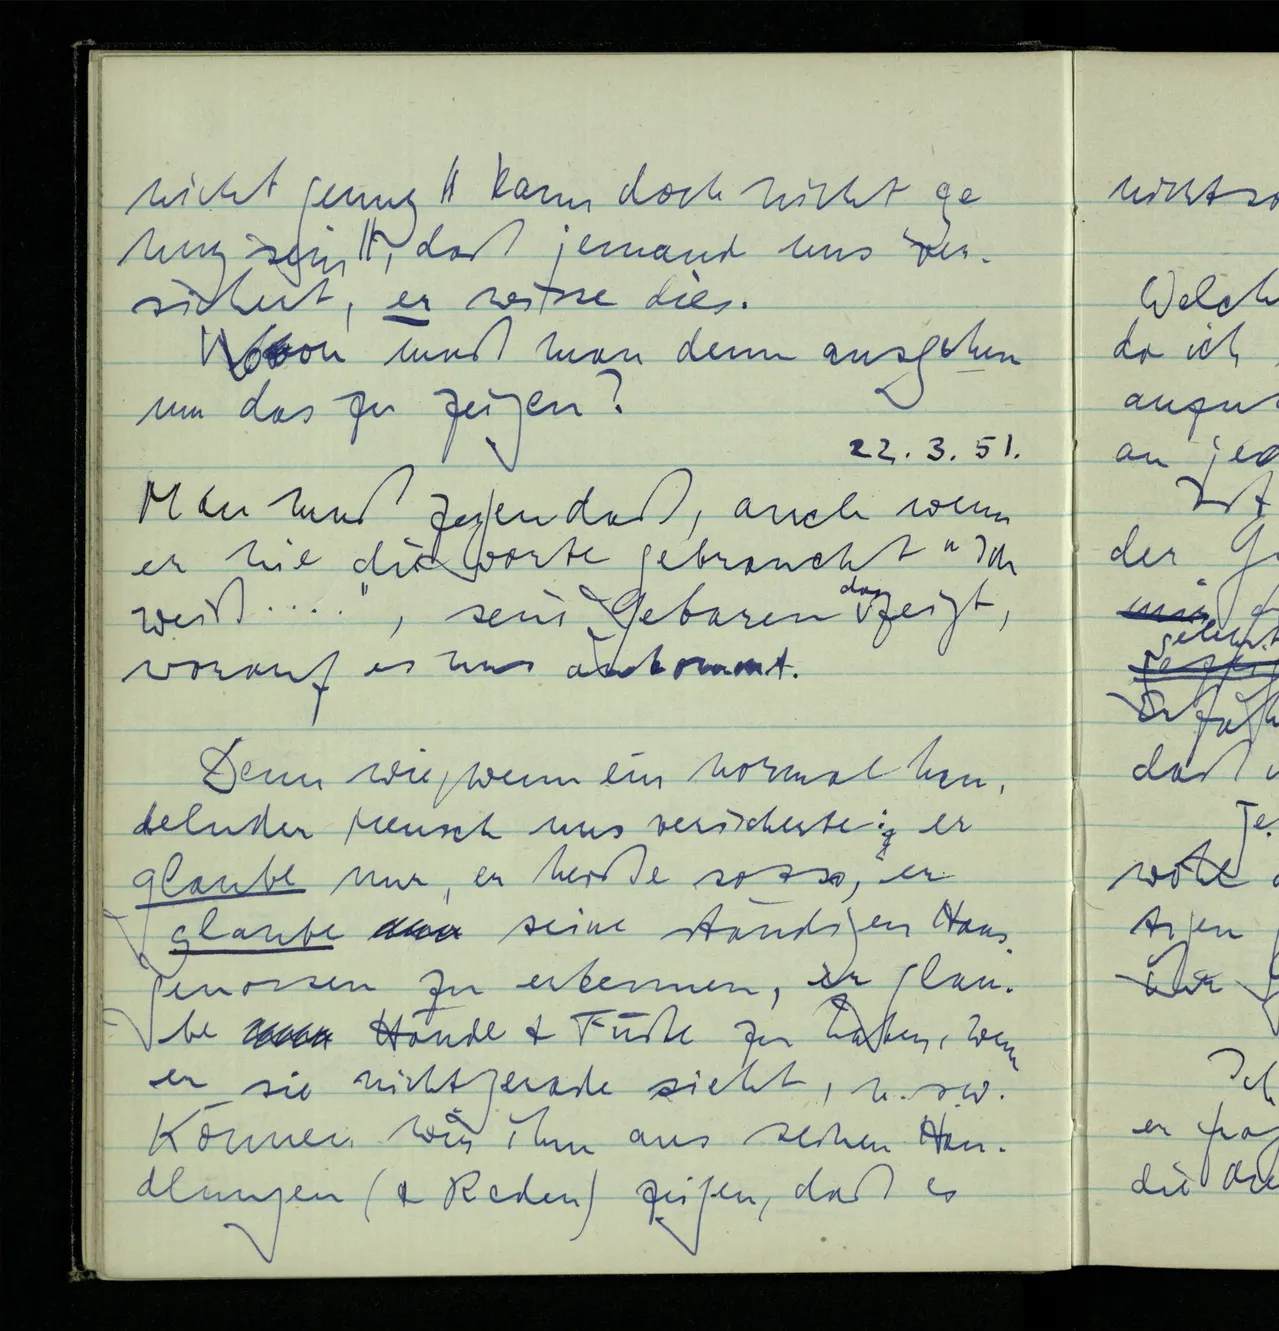 nicht genug || kann doch nicht ge
nug sein ||, daß jemand uns ver-
sichert, er wisse dies.
Wovon muß man denn ausgehen
um das zu zeigen?
22.3.51.
Man muß zeigen daß, auch wenn
er nie die Worte gebraucht "Ich
weiß ....", sein Gebaren das zeigt,
worauf es uns ankommt.
Denn wie, wenn ein normal han-
delnder Mensch uns versicherte: er
glaube nur, er heiße soso, er
glaube seine ständigen Haus-
genossen zu erkennen, er glau-
be Hände & Füße zu haben, wenn
er sie nicht gerade sieht, u.s.w.
Können wir ihm aus seinen Han-
dlungen (& Reden) zeigen, daß es
nicht so
Welch
da ich
an jed
Ist
der
gelernt
daß
Ich
er
die